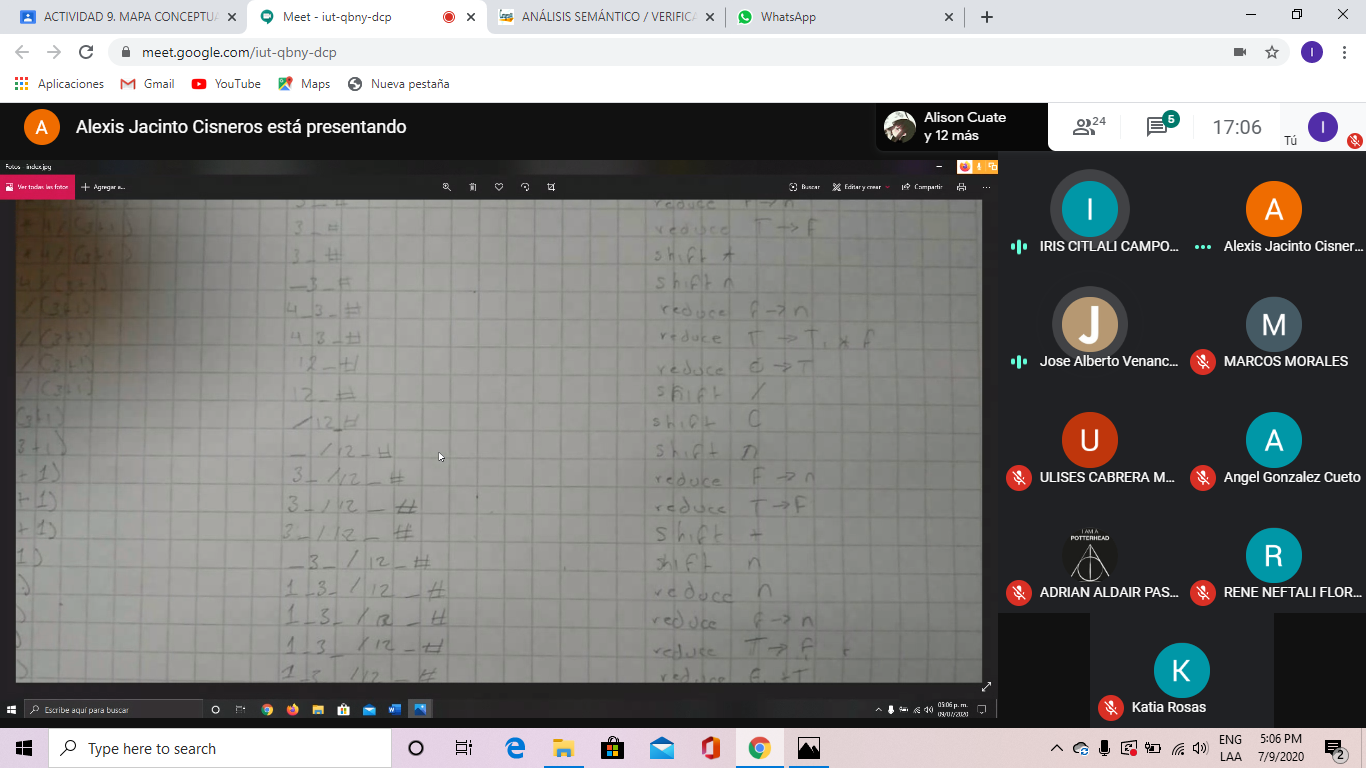 ACTIVIDAD 9. MAPA CONCEPTUA
Meet - iut-qbny-dcp
ANÁLISIS SEMÁNTICO / VERIFICA
WhatsApp
meet.google.com/iut-qbny-dcp
I
Aplicaciones
Gmail
YouTube
Maps
Nueva pestaña
A
Alexis Jacinto Cisneros está presentando
Alison Cuate
y 12 más
24
5
17:06
Tú
I
Fotos - index.jpg
Ver todas las fotos
Agregar a...
Buscar
Editar y crear
Compartir
3 _ # reduce T → F
3 _ # shift *
_ 3 _ # shift n
/(3+1) 4 _ 3 _ # reduce F → n
/(3+1) 4 _ 3 _ # reduce T → T, * F
/(3+1) 12 _ # reduce E → T
/(3+1) 12 _ # shift /
(3+1) / 12 _ # shift C
3+1) _ / 12 _ # shift n
+ 1) 3 _ / 12 _ # reduce F → n
+ 1) 3 _ / 12 _ # reduce T → F
+ 1) 3 _ / 12 _ # shift +
1) _ 3 _ / 12 _ # shift n
) 1 _ 3 _ / 12 _ # reduce n
) 1 _ 3 _ / 12 _ # reduce F → n
) 1 _ 3 _ / 12 _ # reduce T → F
) 1 _ 3 _ / 12 _ # reduce
I
IRIS CITLALI CAMPO...
A
Alexis Jacinto Cisner...
J
Jose Alberto Venanc...
M
MARCOS MORALES
U
ULISES CABRERA M...
A
Angel Gonzalez Cueto
I AM A
POTTERHEAD
ADRIAN ALDAIR PAS...
R
RENE NEFTALI FLOR...
K
Katia Rosas
Escribe aquí para buscar
05:06 p. m.
09/07/2020
Type here to search
ENG
LAA
5:06 PM
7/9/2020
2